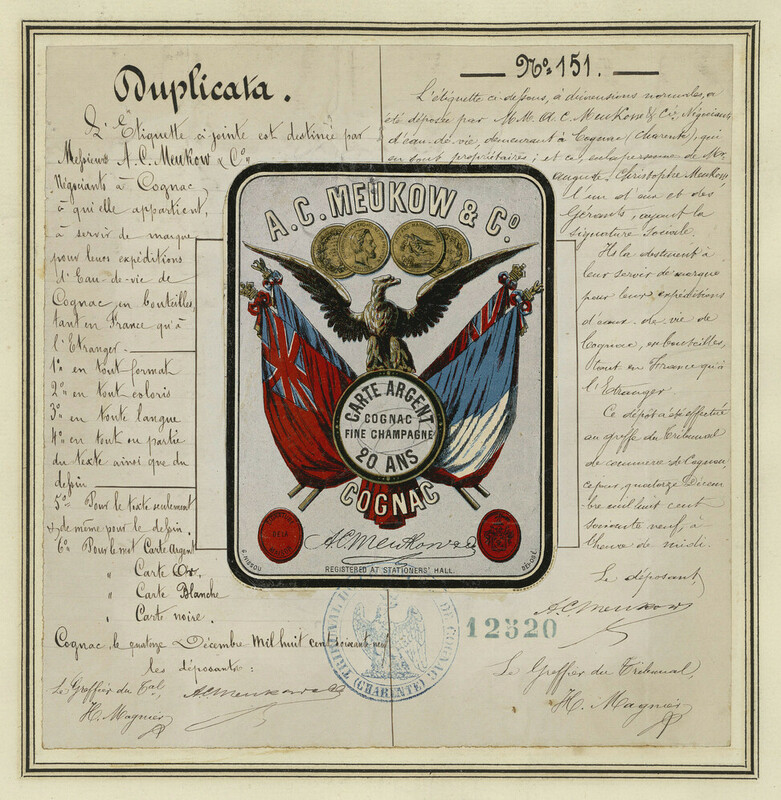 Duplicata.
L'Etiquette ci-jointe est destinée par
Messieurs A. C. Meukow & Co
Négociants à Cognac,
à qui elle appartient,
à servir de marque
pour leurs expéditions
d'Eau-de-vie de
Cognac, en bouteilles,
tant en France qu'à
l'Etranger.
1o en tout format
2o en tout coloris
3o en toute langue
4o en tout ou partie
du texte ainsi que du
dessin
5o Pour le texte seulement
de même pour le dessin.
6o Pour le mot Carte Argent
" Carte Or.
" Carte Blanche
" Carte noire.
Cognac, le quatorze Décembre Mil huit cent soixante neuf
les déposants:
Le Greffier du Tal,
H. Magnier
A.C. Meukow & Co
No. 151.
L'étiquette ci-dessous, à dimensions normales, a
été déposée par M.M. A. C. Meukow & Cie, Négociants
d'eau-de-vie, demeurant à Cognac (Charente), qui
en sont propriétaires; et ce, en la personne de Mr
Auguste Christophe Meukow
l'un d'eux et des
Gérants, ayant la
signature sociale.
Ils la destinent à
leur servir de marque
pour leurs expéditions
d'eaux-de-vie de
Cognac, en bouteilles,
tant en France qu'à
l'Etranger
Ce dépôt a été effectué
au greffe du Tribunal
de commerce de Cognac,
ce jour, quatorze Décem
bre mil huit cent
soixante neuf, à
l'heure de midi.
Le déposant,
A.C. Meukow
12520
Le Greffier du Tribunal,
H. Magnier
A.C. MEUKOW & Co.
CARTE ARGENT
COGNAC
FINE CHAMPAGNE
20 ANS
COGNAC
A.C. Meukow & Co
REGISTERED AT STATIONERS' HALL.
DE COGNAC
(CHARENTE)